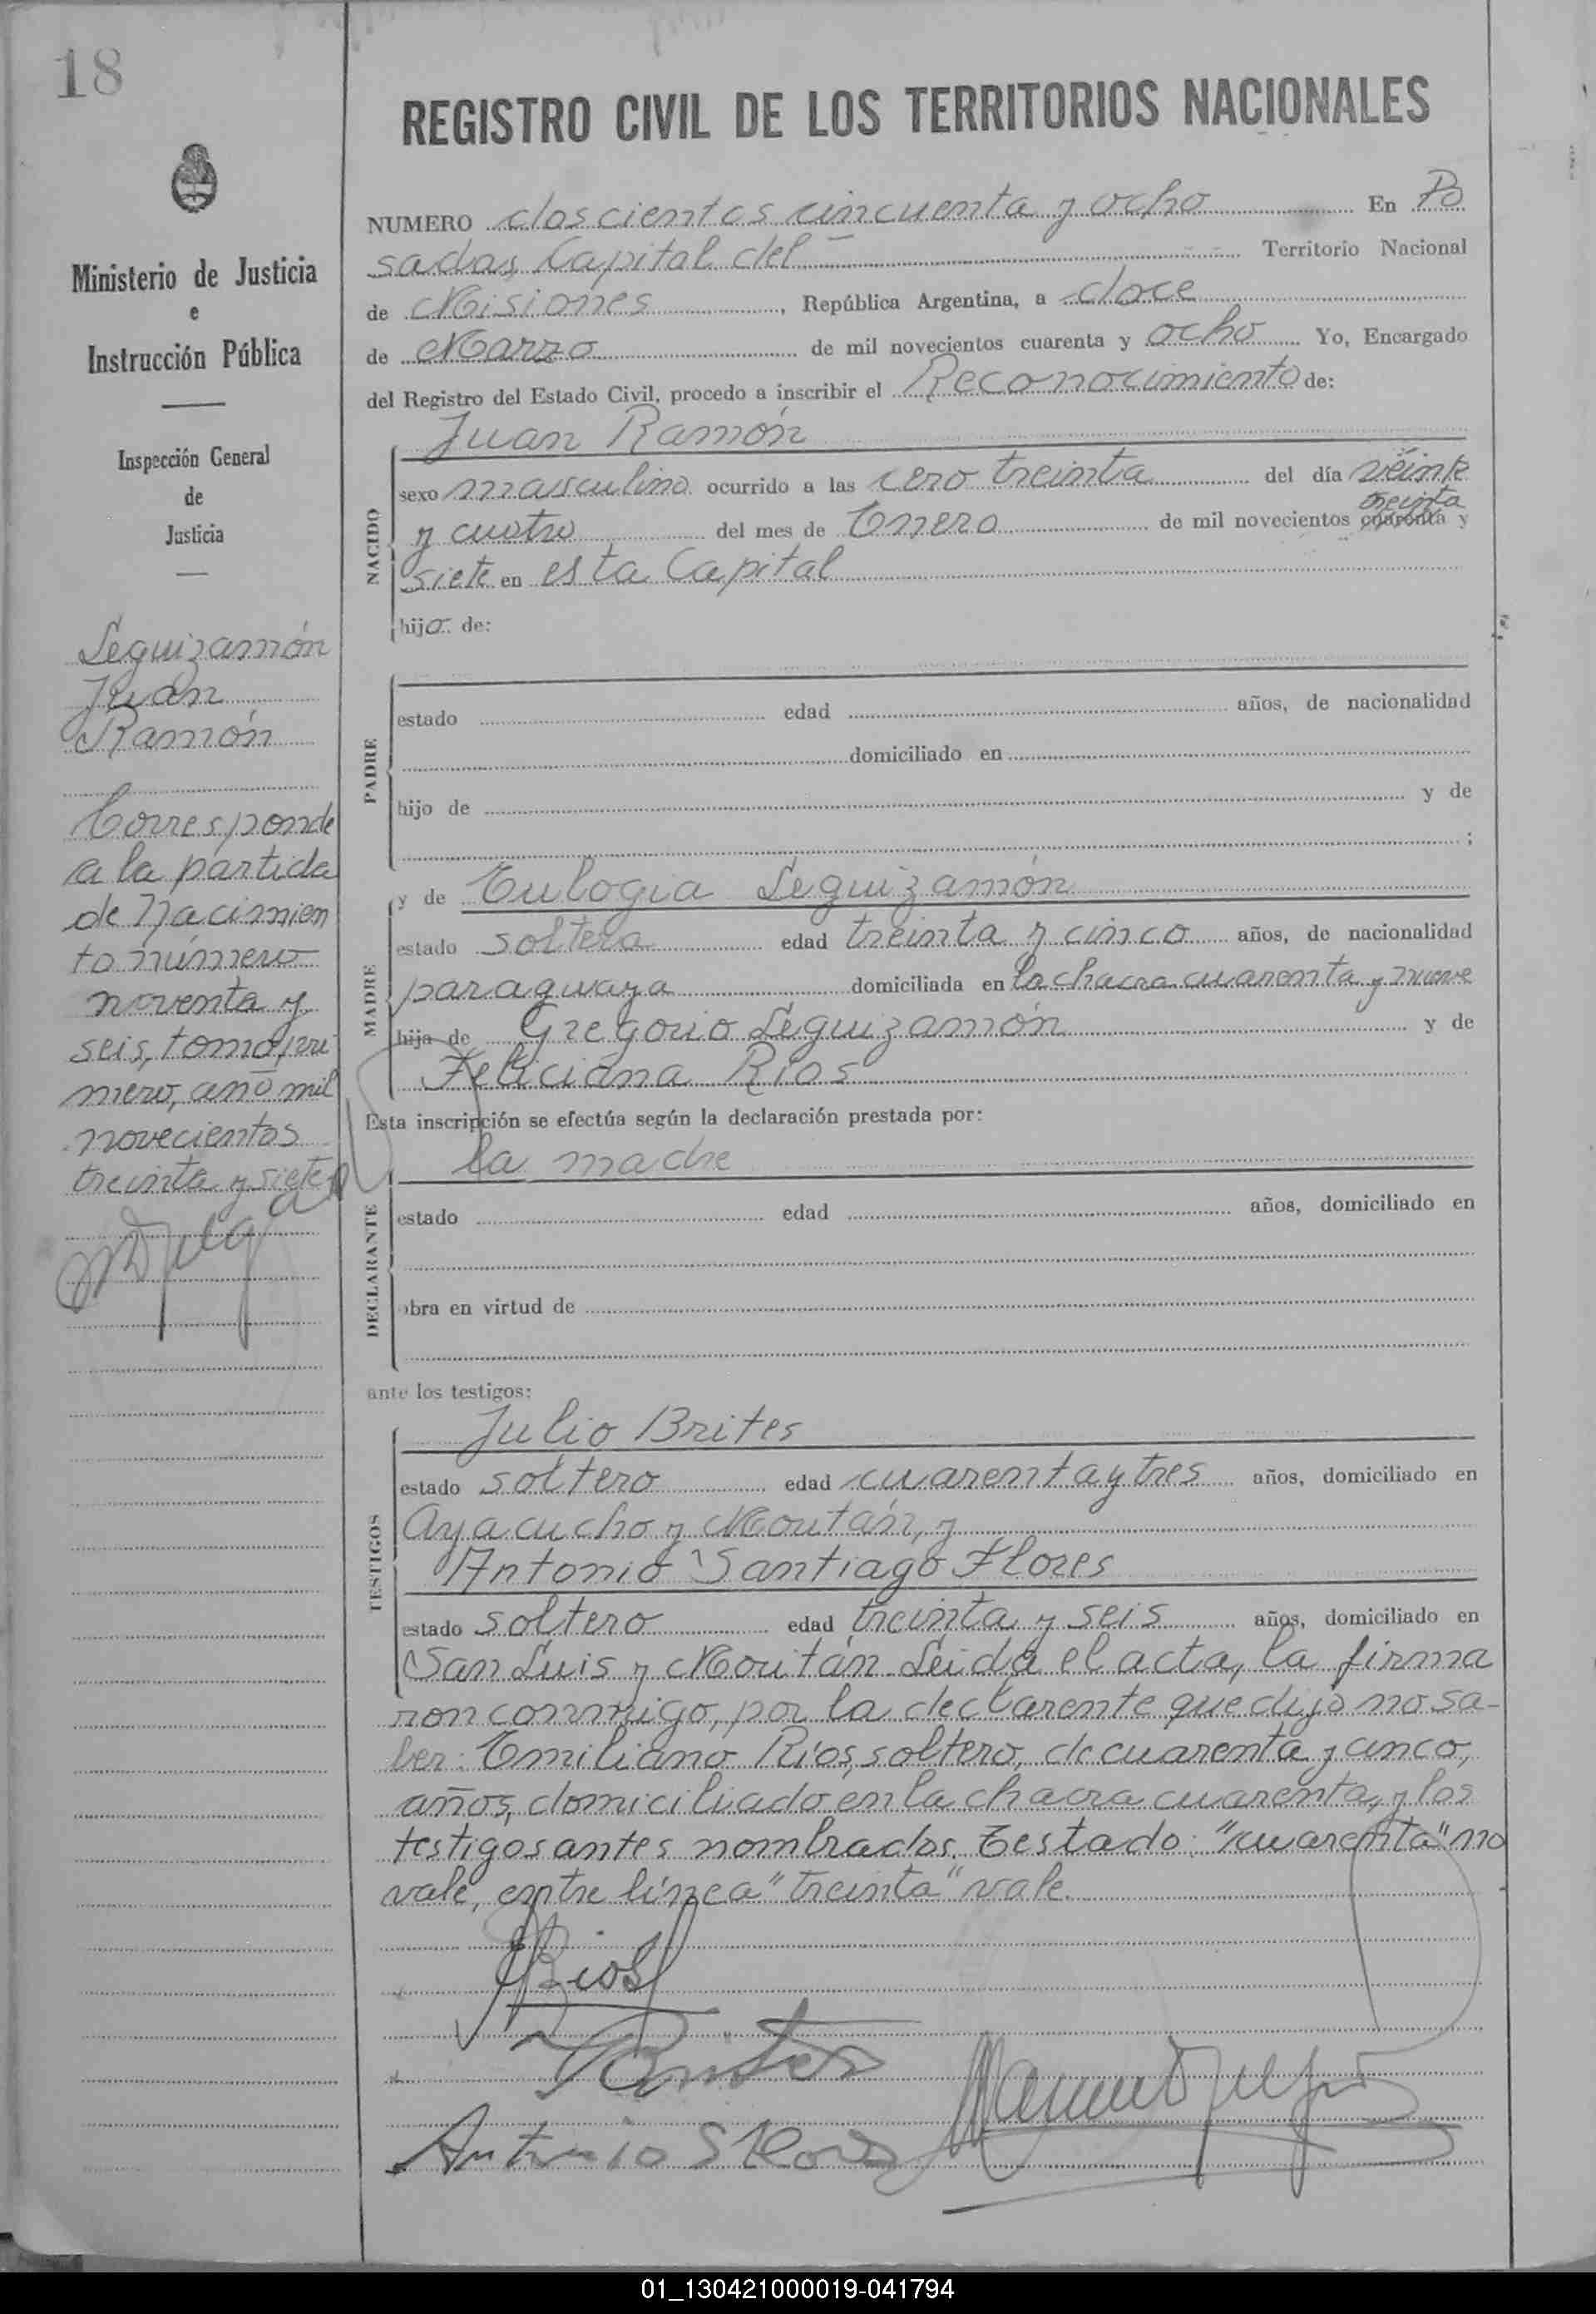 18
REGISTRO CIVIL DE LOS TERRITORIOS NACIONALES
Ministerio de Justicia
e
Instrucción Pública
Inspección General
de
Justicia
Leguizamón
Juan
Ramón
Corresponde
a la partida
de Nacimien
to número
noventa y
seis, tomo pri
mero, año mil
novecientos
treinta y siete
NUMERO doscientos cincuenta y ocho En Po
sadas, Capital del Territorio Nacional
de Misiones, República Argentina, a doce
de Marzo de mil novecientos cuarenta y ocho Yo, Encargado
del Registro del Estado Civil, procedo a inscribir el Reconocimiento de:
Juan Ramón
NACIDO
sexo masculino ocurrido a las cero treinta del día veinte
treinta
y cuatro del mes de Enero de mil novecientos cuarenta y
siete en esta Capital
hijo de:
PADRE
estado edad años, de nacionalidad
domiciliado en
hijo de y de
;
MADRE
y de Eulogia Leguizamón
estado soltera edad treinta y cinco años, de nacionalidad
paraguaya domiciliada en la chacra cuarenta y nueve
hija de Gregorio Leguizamón y de
Feliciana Ríos
Esta inscripción se efectúa según la declaración prestada por:
la madre
DECLARANTE
estado edad años, domiciliado en
obra en virtud de
ante los testigos:
TESTIGOS
Julio Brites
estado soltero edad cuarenta y tres años, domiciliado en
Ayacucho y Moután, y
Antonio Santiago Flores
estado soltero edad treinta y seis años, domiciliado en
San Luis y Moután. Leida el acta, la firma
ron conmigo, por la declarente que dijo no sa-
ber: Emiliano Ríos, soltero, de cuarenta y cinco,
años, domiciliado en la chacra cuarenta, y los
testigos antes nombrados. Testado: "cuarenta" no
vale, entre línea "treinta" vale.
ERios
JBrites
Antonio S Flores
01_130421000019-041794